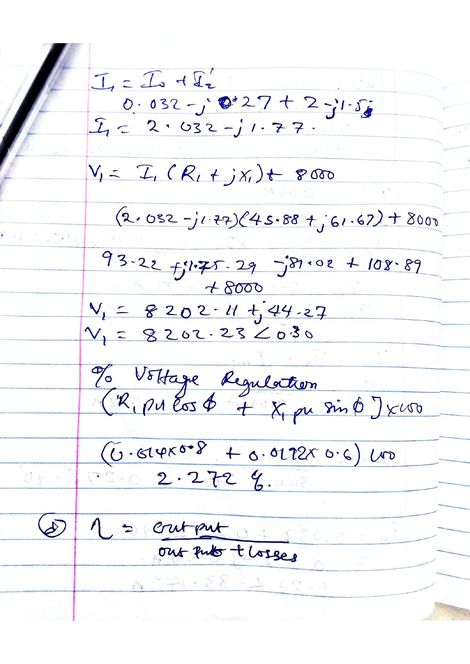 I₁ = I₀ + I₂'
0.032 - j 0.27 + 2 - j1.5
I₁ = 2.032 - j1.77.
V₁ = I₁ (R₁ + jX₁) + 8000
(2.032 - j1.77)(45.88 + j61.67) + 8000
93.22 + j1.75.29 - j81.02 + 108.89
+ 8000
V₁ = 8202.11 + j44.27
V₁ = 8202.23 < 0.30
% Voltage Regulation
(R₁ pu cos ϕ + X₁ pu sin ϕ] x 100
(0.014x0.8 + 0.0192x 0.6) 100
2.272 %.
d η = output
out put + losses